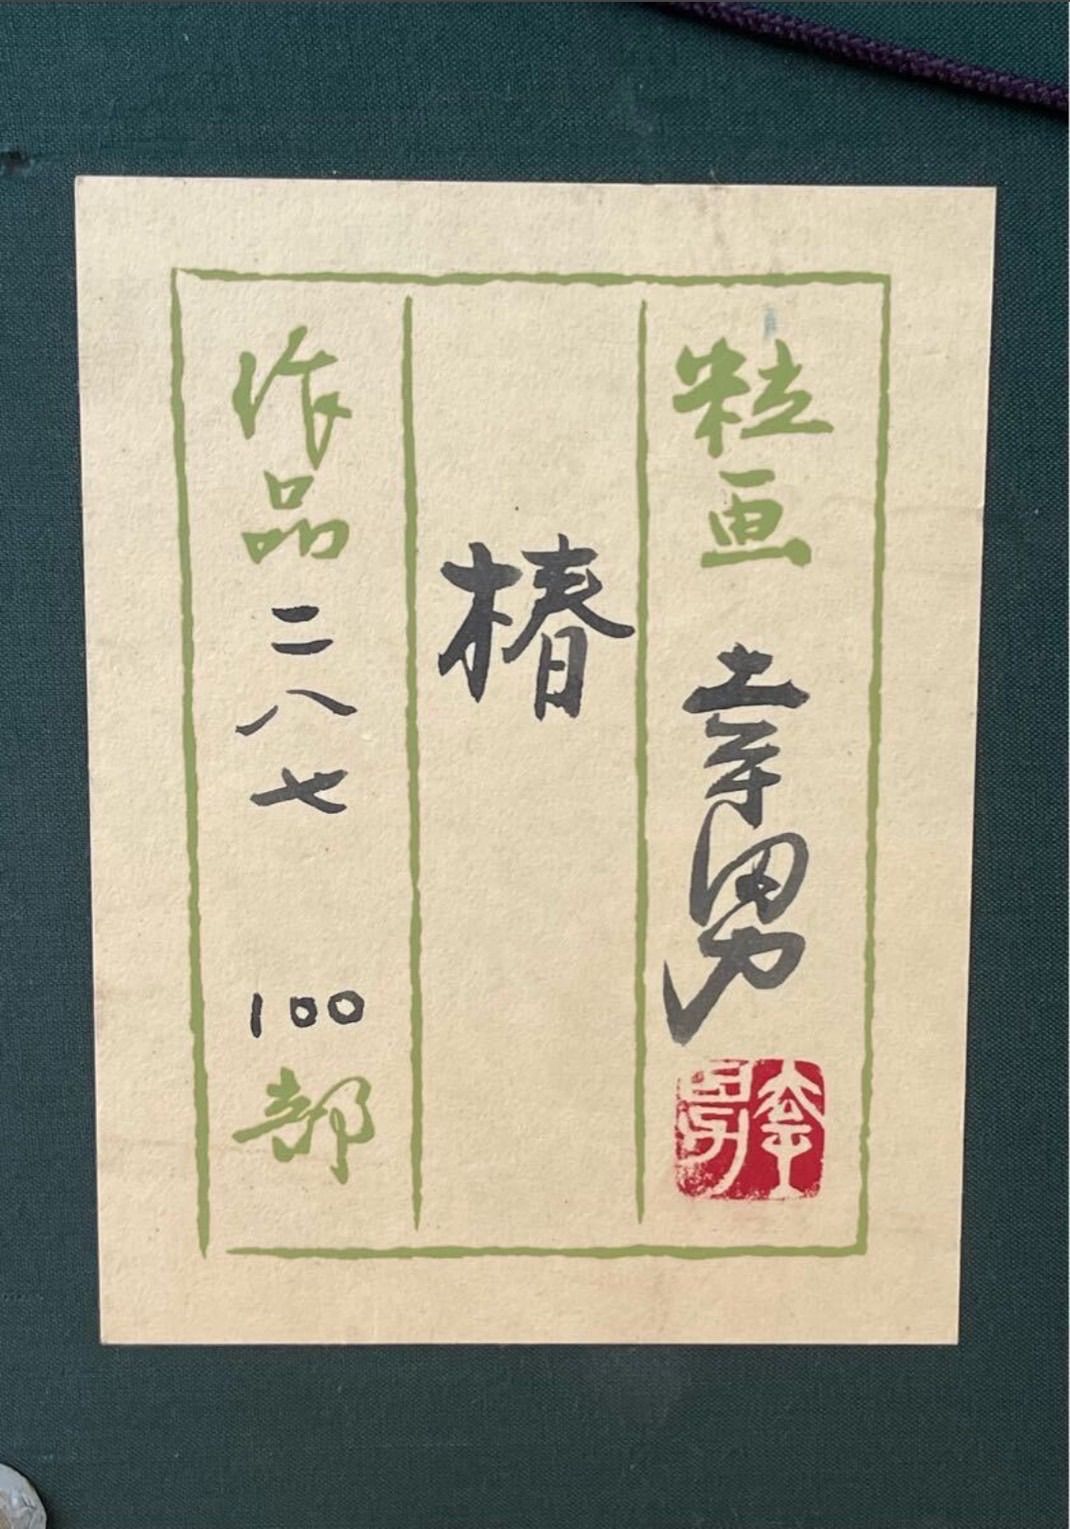 粒画 幸男
幸男
椿
作品二八七 100部